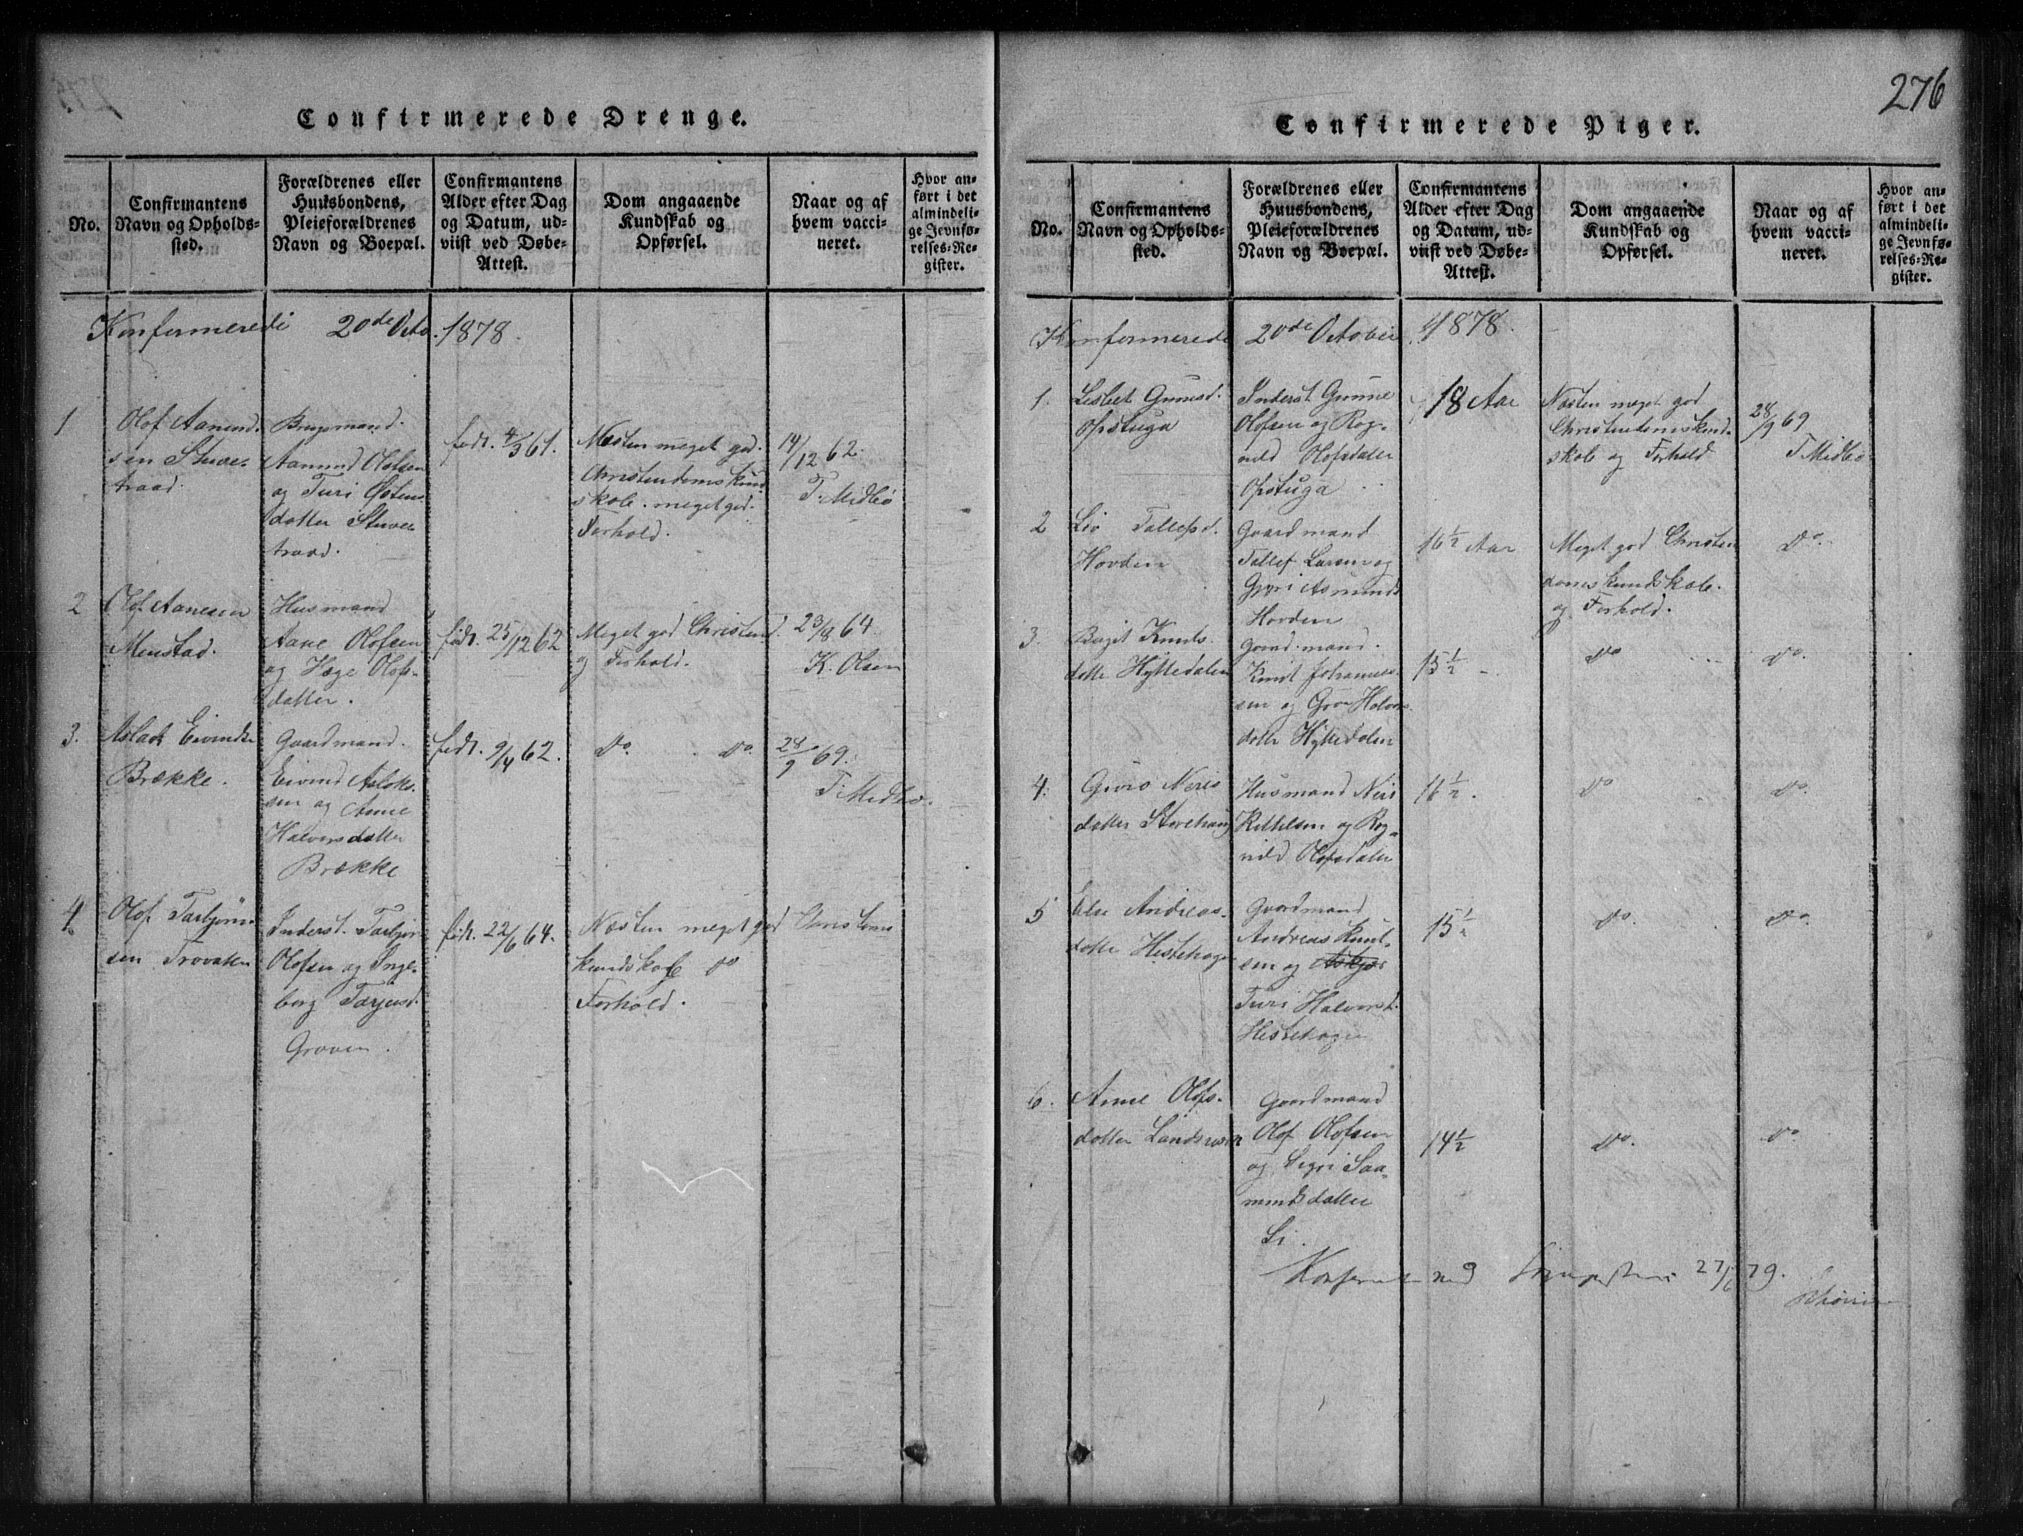 276
Confirmerede Drenge.
No.
Confirmantens
Navn og Opholds-
sted.
Forældrenes eller
Huusbondens,
Pleieforældrenes
Navn og Boepæl.
Confirmantens
Alder efter Dag
og Datum, ud-
viist ved Døbe-
Attest.
Dom angaaende
Kundskab og
Opførsel.
Naar og af
hvem vacci-
neret.
Hvor an-
ført i det
almindeli-
ge Jevnfø-
relses-Re-
gister.
Konfermerede 20de Octo. 1878.
1
Olof Aamund-
sen
traad.
Brugsmand.
Aamund Olofsen
og Turi Østens
datter
traad.
født. 4/3 61.
Næsten meget god.
Christendomskund
skab. meget god.
Forhold.
14/12 62.
T. Midbø
2
Olof Aanesen
Menstad.
Husmand
Aane Olofsen
og Hæge Olofs-
datter.
født. 25/12 62
Meget god Christend.
og Forhold.
23/8 64.
K. Olsen
3.
Aslak Eivinds
Brække.
Gaardmand.
Eivind Aslaks-
sen og Anne
Halvorsdatter
Brække
født. 9/4 62.
do. do.
28/9 69.
T. Midbø.
4
Olof Tarbjørn-
sen Trovaten
Inderst. Tarbjør
Olofsen og Inge-
borg Tarjeisd.
Groven.
født. 22/6 64.
Næsten meget god Christend
kundskab do
Forhold.
Confirmerede Piger.
No.
Confirmantens
Navn og Opholds-
sted.
Forældrenes eller
Huusbondens,
Pleieforældrenes
Navn og Boepæl.
Confirmantens
Alder efter Dag
og Datum, ud-
viist ved Døbe-
Attest.
Dom angaaende
Kundskab og
Opførsel.
Naar og af
hvem vacci-
neret.
Hvor an-
ført i det
almindeli-
ge Jevnfø-
relses-Re-
gister.
Konfermerede 20de October 1878.
1.
Lisbet Gunnd.
Opstuga
Inderst Gunne
Olofsen og Rog-
nild Olofsdatter
Opstuga
18 Aar
Næsten meget god
Christendomskund-
skab og Forhold
28/9 69
T Midbø
2
Liv Tallefsd.
Hovden
Gaardmand
Tallef Larsen og
Gyri Asmunds
Hovden
16 1/2 Aar
Meget god Christen
domskundskab.
og Forhold.
do.
3.
Bergit Knuts-
datte Hyttedalen
Gaardmand.
Knut Johannes-
sen og Gro Halvors
datte Hyttedalen
15 1/2 -
do
do.
4.
Guro Neris
datter Storehaug
Husmand Neri
Kittilsen og Rog-
nild Olofsdatter
16 1/2.
do
do.
5
Else Andreas-
datte Hestehagen
Gaardmand
Andreas Knut-
sen og Askjær
Turi Halvorsd.
Hestehagen
15 1/2
do.
do.
6.
Anne Olofs-
datter
Gaardmand
Olof Olofsen
og Sigri Saa-
mundsdatter
Li.
14 1/2
do.
do
27/6 79.